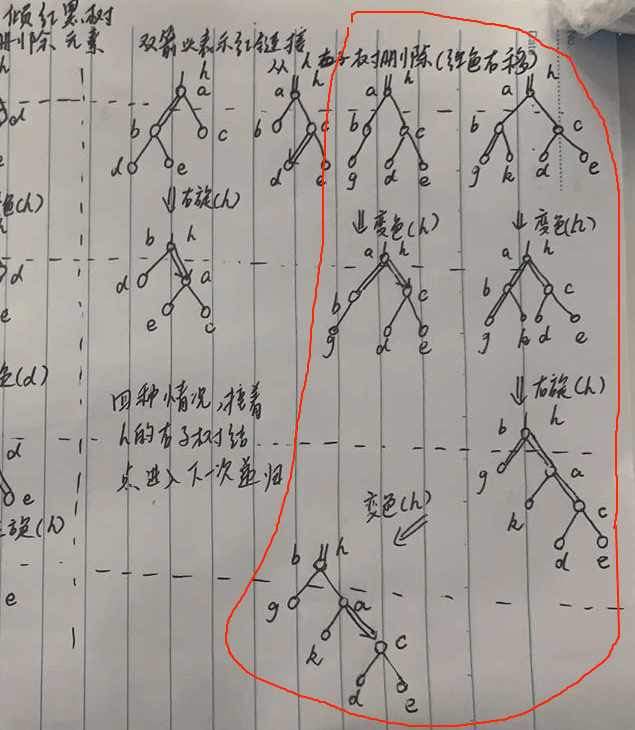 倾红黑树
删除元素
双箭头表示红链接
从h右子树删除(红色右移)
Date
No
h
a
b
c
d
e
右旋(h)
b
h
d
a
e
c
a
h
b
c
d
e
a
h
b
c
g
d
e
变色(h)
a
h
b
c
g
d
e
a
h
b
c
g
k
d
e
变色(h)
a
h
b
c
g
k
d
e
右旋(h)
b
h
g
a
k
c
d
e
变色(h)
b
h
g
a
k
c
d
e
四种情况,接着
h的右子树结
点进入下一次递归
h
d
e
色(h)
h
d
e
色(d)
d
e
旋(h)
e